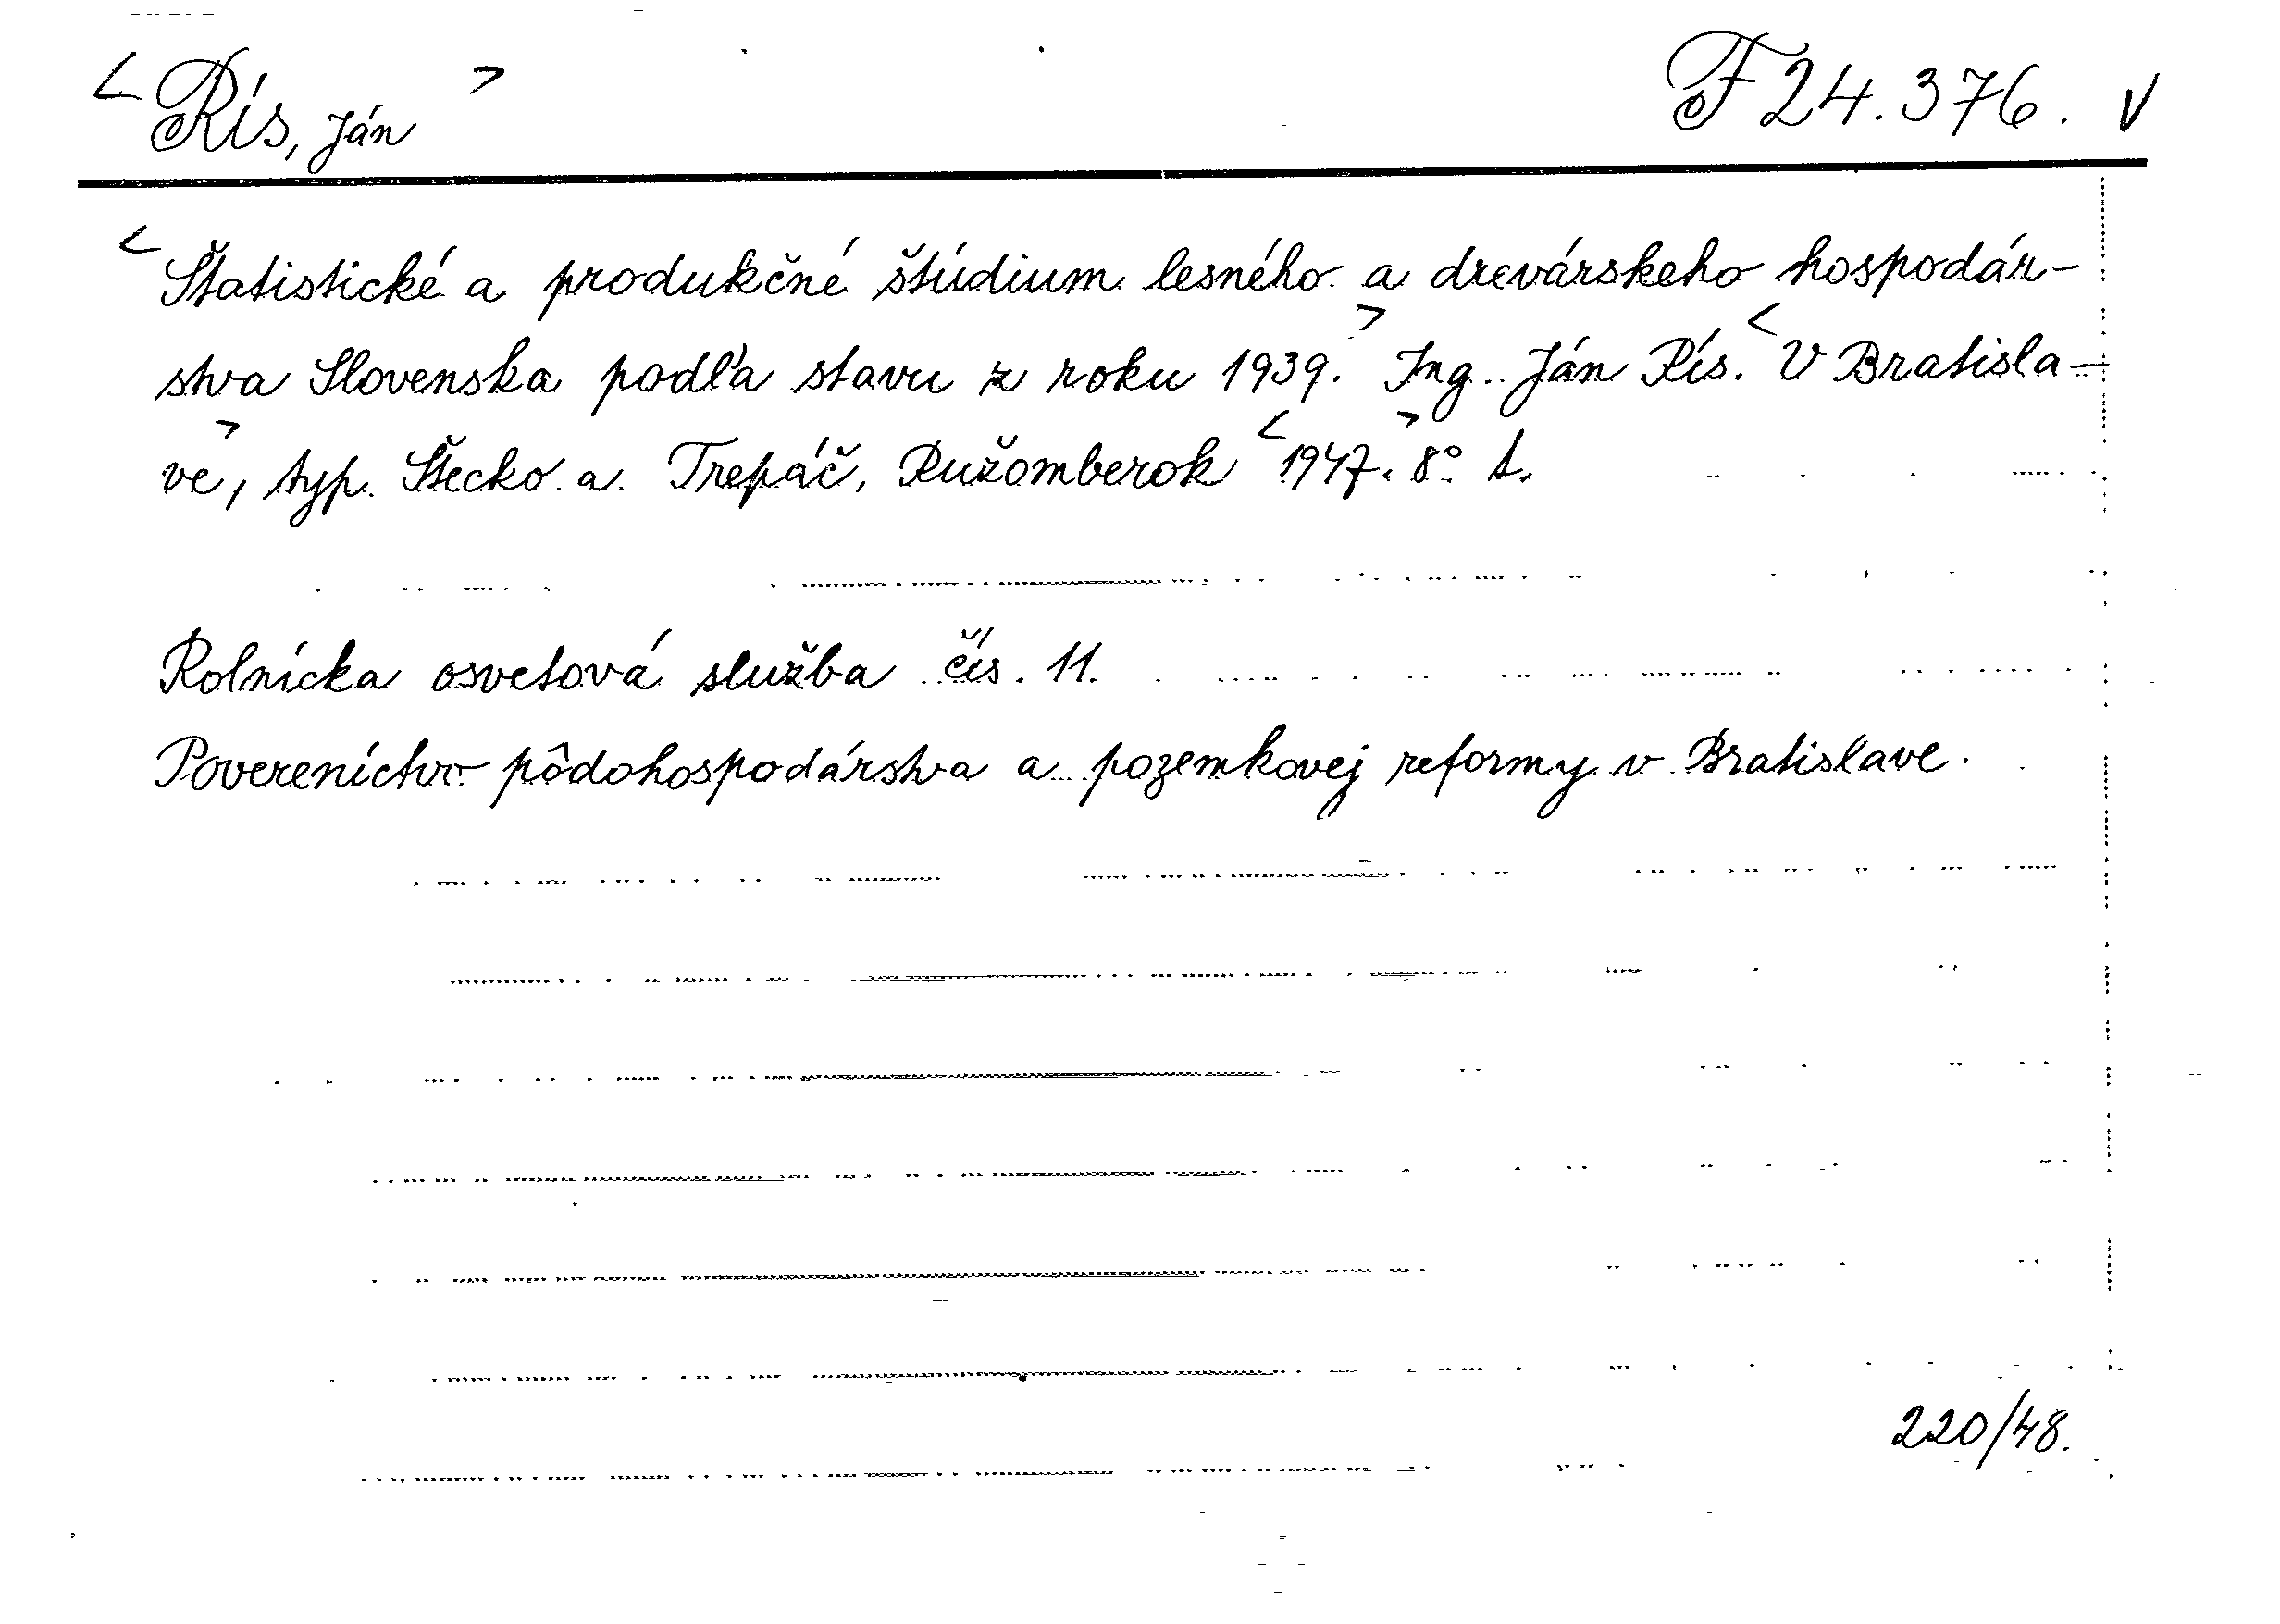 <Rís, Ján> F 24.376. V
<Štatistické a produkčné štúdium lesného a drevárskeho hospodár-
stva Slovenska podľa stavu z roku 1939.> Ing. Ján Rís. <V Bratisla-
ve>, typ. Štecko a Trepáč, Ružomberok <1947.> 8° t.
Rolnícka osvetová služba čís. 11.
Povereníctvo pôdohospodárstva a pozemkovej reformy v Bratislave.
220/48.